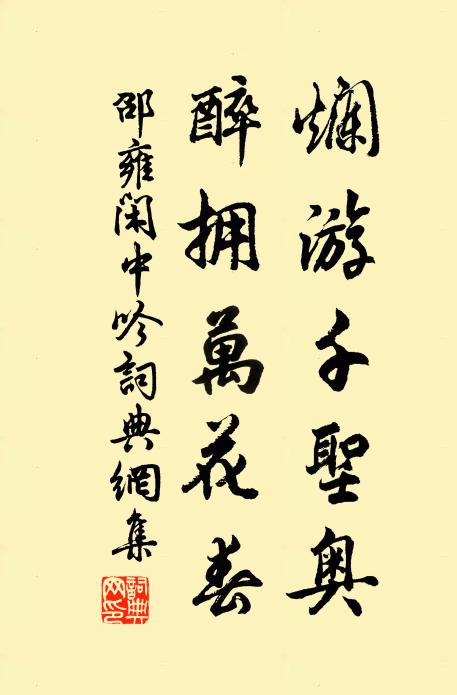 爛游千聖奧
醉拥萬花春
邵雍閑中吟詞典網集
詞典网印